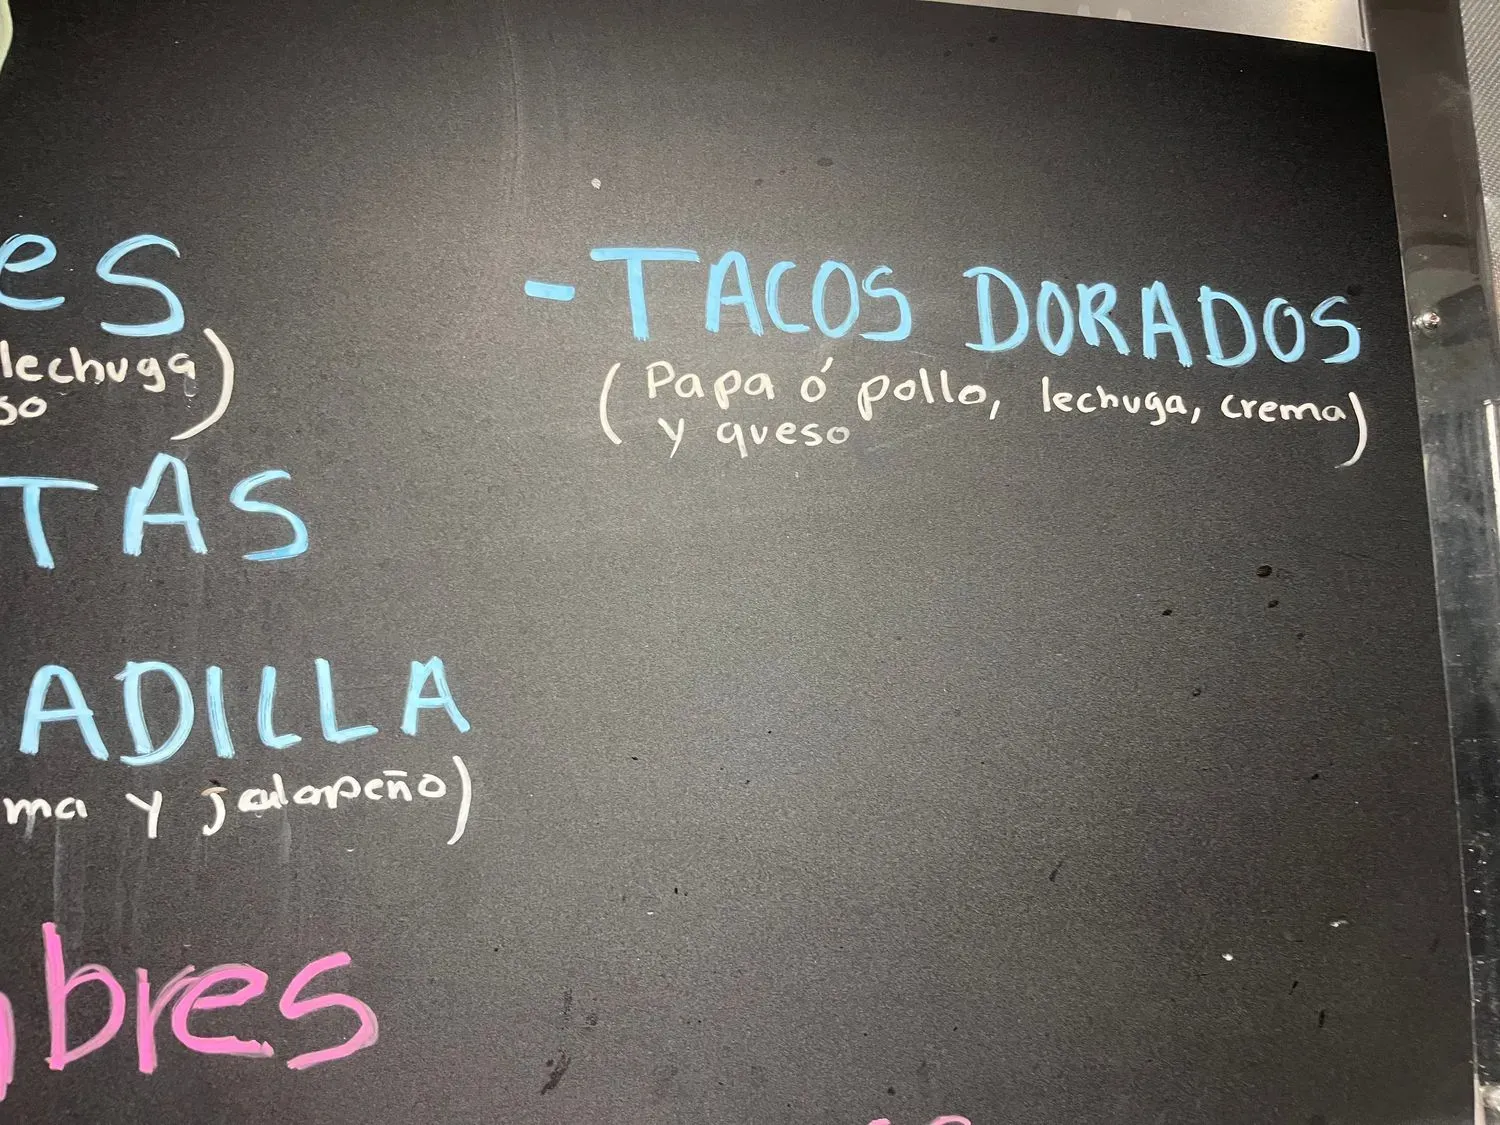 es
lechuga)
so
TAS
ADILLA
ma y jalapeño)
bres
- TACOS DORADOS
(Papa ó pollo, lechuga, crema)
y queso